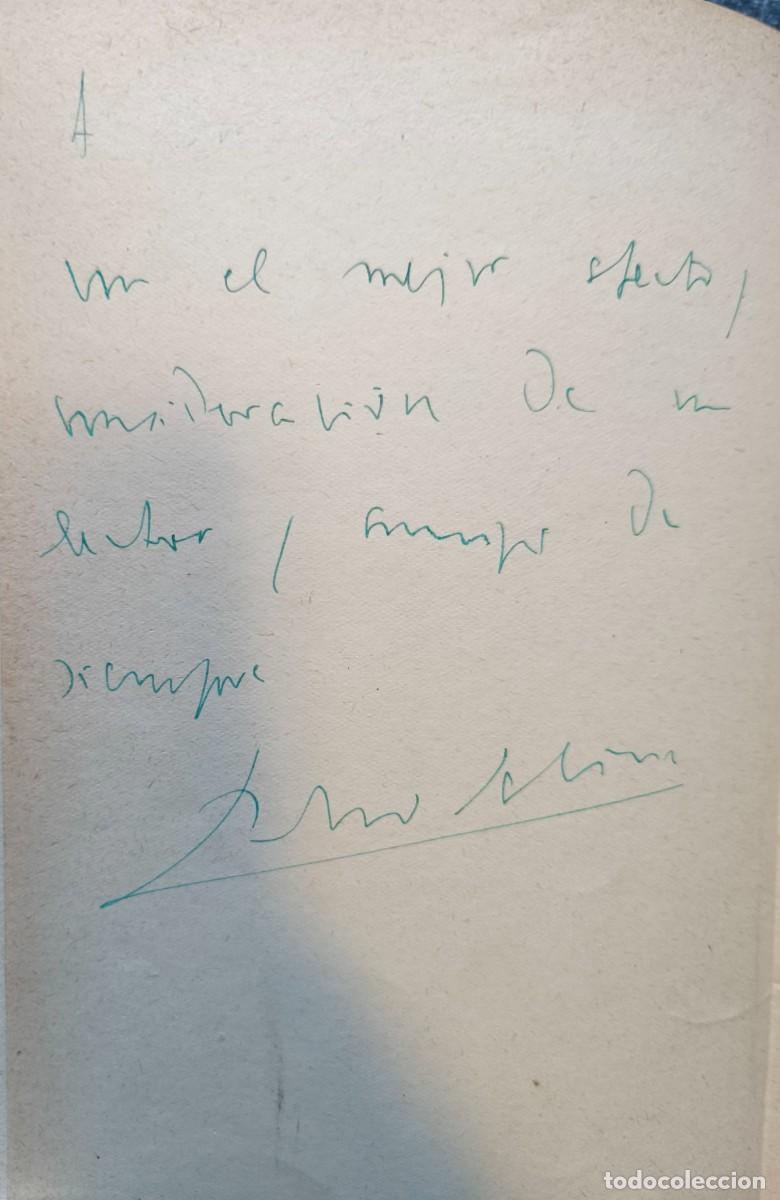 A
con el mejor afecto,
consideración de un
lector y amigo de
siempre
todocoleccion